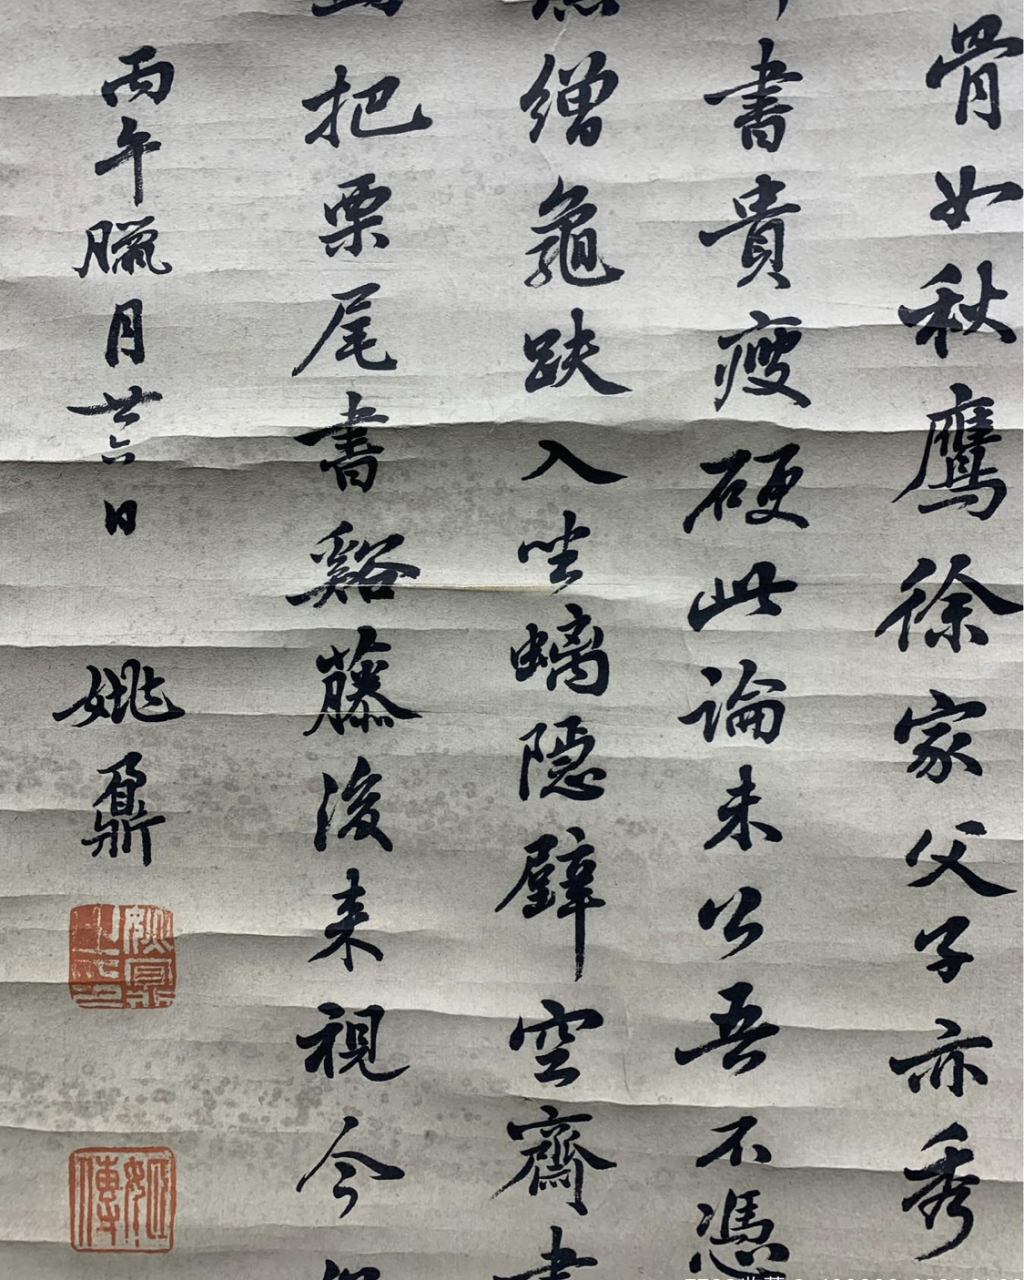 骨如秋鷹徐家父子亦秀
書貴瘦硬此論未公吾不憑
繒龜趺入坐螭隱壁空齋書
把栗尾書谿藤後来視今
丙午臘月廿六日 姚鼐